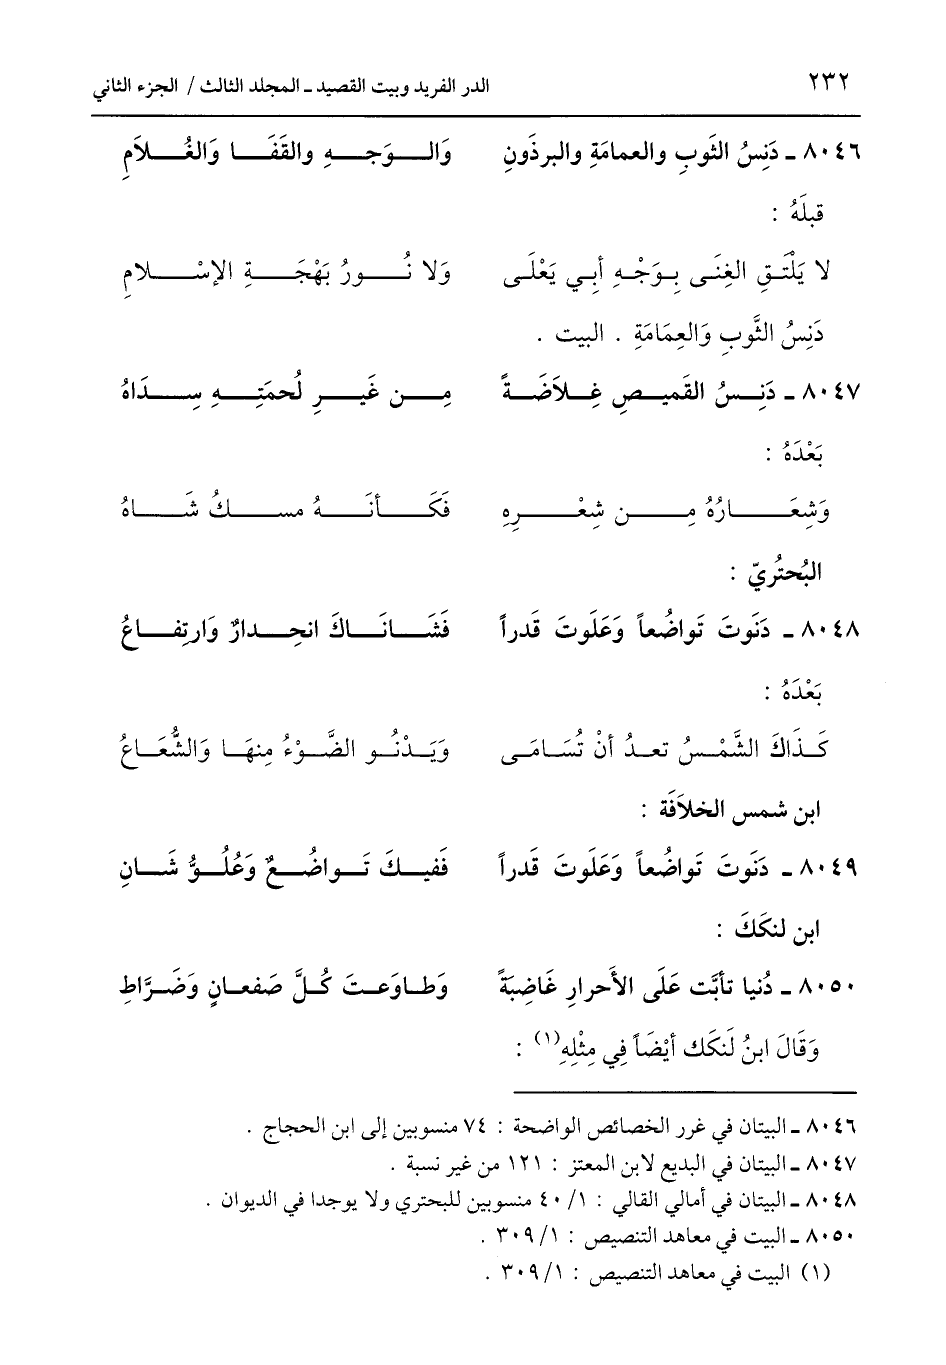 ٢٣٢ الدر الفريد وبيت القصيد ـ المجلد الثالث / الجزء الثاني
٨٠٤٦ ـ دَنِسُ الثَوبِ والعمامَةِ والبرذَونِ وَالوَجهِ والقَفَا وَالغُلاَمِ
قبلَهُ :
لا يَلْتَقِ الغِنَى بِوَجْهِ أبي يَعْلَى وَلا نُورُ بَهْجَةِ الإسْلامِ
دَنِسُ الثَّوبِ وَالعِمَامَةِ . البيت .
٨٠٤٧ ـ دَنِسُ القَميصِ غِلاَضَةً مِن غَيرِ لُحمَتِهِ سِدَاهُ
بَعْدَهُ :
وَشِعَارُهُ مِن شِعْرِهِ فَكَأنَهُ مسكُ شَاهُ
البُحتُريّ :
٨٠٤٨ ـ دَنَوتَ تَواضُعاً وَعَلَوتَ قَدراً فَشَانَاكَ انحِدارٌ وَارتِفاعُ
بَعْدَهُ :
كَذَاكَ الشَّمْسُ تعدُ أنْ تُسَامَى وَيَدْنُو الضَّوْءُ مِنهَا وَالشُّعَاعُ
ابن شمس الخلاَفَة :
٨٠٤٩ ـ دَنَوتَ تَواضُعاً وَعَلَوتَ قَدراً فَفيكَ تَواضُعٌ وَعُلُوُّ شَانِ
ابن لنكَكَ :
٨٠٥٠ ـ دُنيا تأبَّت عَلَى الأَحرارِ غَاضِبَةً وَطاوَعتَ كُلَّ صَفعانٍ وَضَرَّاطِ
وَقَالَ ابنُ لَنكَك أيْضَاً فِي مِثْلِهِ(١) :
٨٠٤٦ ـ البيتان في غرر الخصائص الواضحة : ٧٤ منسوبين إلى ابن الحجاج .
٨٠٤٧ ـ البيتان في البديع لابن المعتز : ١٢١ من غير نسبة .
٨٠٤٨ ـ البيتان في أمالي القالي : ١/ ٤٠ منسوبين للبحتري ولا يوجدا في الديوان .
٨٠٥٠ ـ البيت في معاهد التنصيص : ١/ ٣٠٩ .
(١) البيت في معاهد التنصيص : ١/ ٣٠٩ .